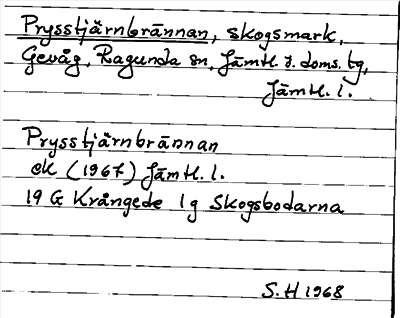 Prysstjärnbrännan, skogsmark,
Gevåg, Ragunda sn, Jämtl. ö. doms. tg,
Jämtl. l.
Prysstjärnbrännan
ek (1967) Jämtl. l.
19 G Krångede 1g Skogsbodarna
S.H 1968